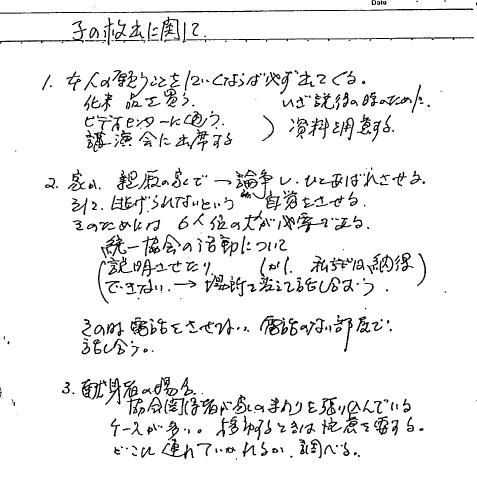 Date
子の救出に関して
1. 本人の願うことをしていくならば必ず出てくる。
化粧品を買う。 いざ説得の時のために、
ビデオセンターに通う。 資料を用意する。
講演会に出席する
2. 家か、親族の家で→論争し、ひとあばれさせる。
そして、逃げられないという自覚をさせる。
そのためには 6人位の人が必要である。
統一協会の活動について
(説明させたり しかし、私たちは納得
できない → 場所を変えて話し合おう)
その時 電話をさせない。電話のない部屋で
話し合う。
3. 献身者の場合
協会関係者が家のまわりを張り込んでいる
ケースが多い。移動するときは注意を要する。
どこに連れていかれるか 調べる。